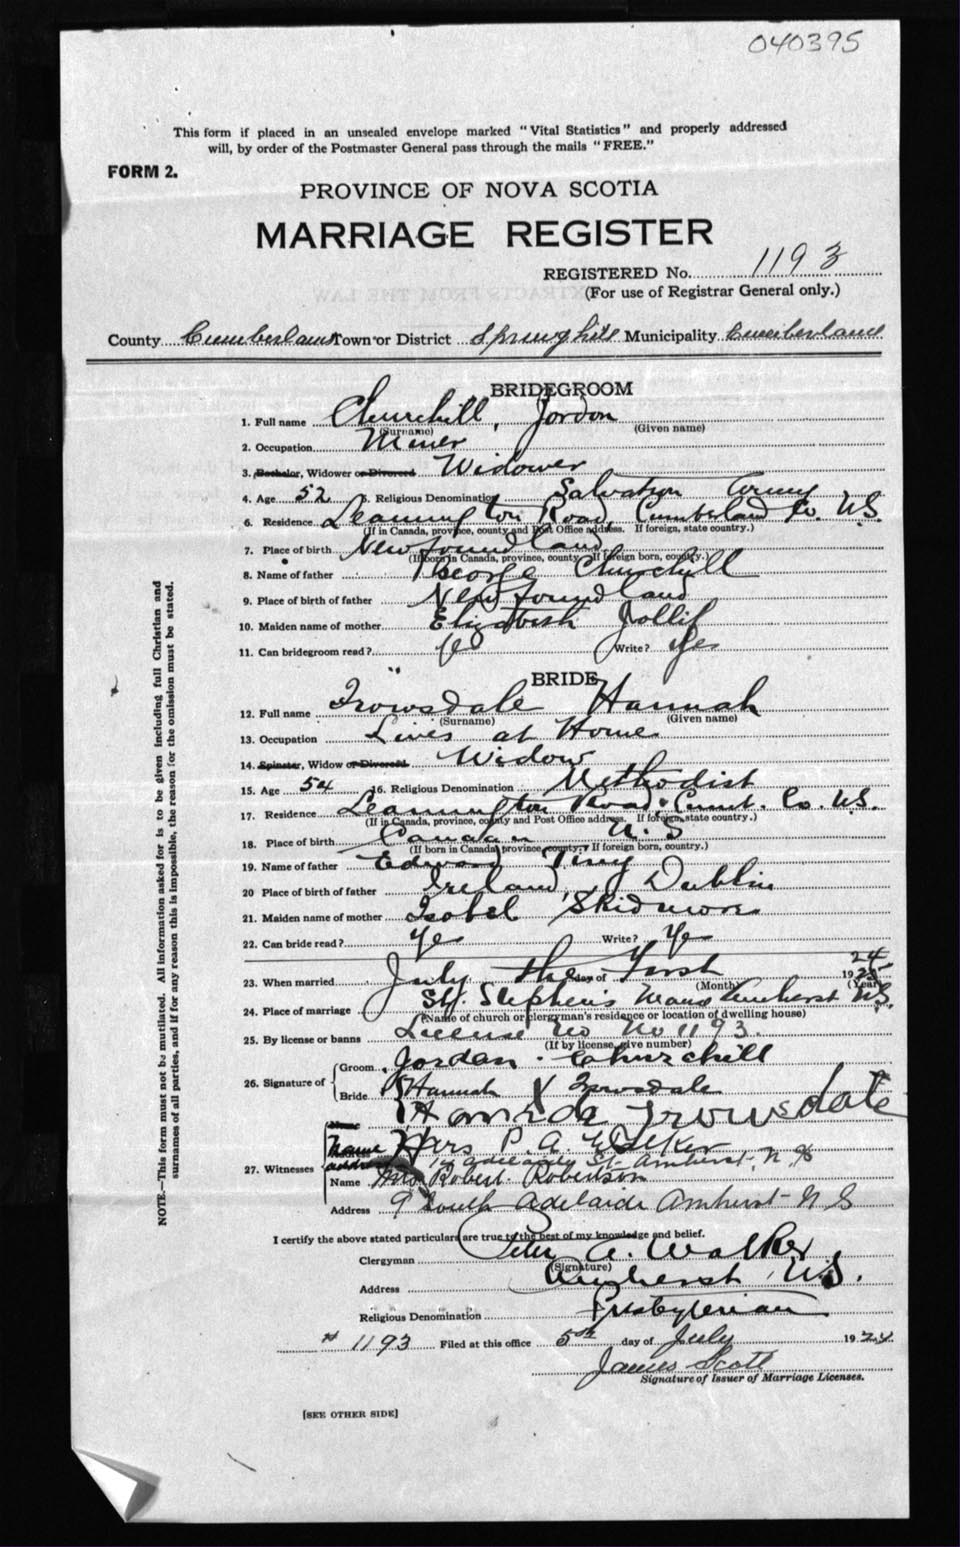 040395
This form if placed in an unsealed envelope marked "Vital Statistics" and properly addressed
will, by order of the Postmaster General pass through the mails "FREE."
FORM 2.
PROVINCE OF NOVA SCOTIA
MARRIAGE REGISTER
REGISTERED No. 1193
(For use of Registrar General only.)
County Cumberland Town or District Springhill Municipality Cumberland
BRIDEGROOM
1. Full name Churchill, Jordon
(Surname) (Given name)
2. Occupation Miner
3. Bachelor, Widower or Divorced Widower
4. Age 52 5. Religious Denomination Salvation Army
6. Residence Leamington Road, Cumberland Co. N.S.
(If in Canada, province, county and Post Office address. If foreign, state country.)
7. Place of birth Newfoundland
(If born in Canada, province, county. If foreign born, country.)
8. Name of father George Churchill
9. Place of birth of father Newfoundland
10. Maiden name of mother Elizabeth Jollif
11. Can bridegroom read? Yes Write? Yes
BRIDE
12. Full name Trowsdale Hannah
(Surname) (Given name)
13. Occupation Lives at Home
14. Spinster, Widow or Divorced. Widow
15. Age 54 16. Religious Denomination Methodist
17. Residence Leamington Road, Cumb. Co. N.S.
(If in Canada, province, county and Post Office address. If foreign, state country.)
18. Place of birth Canaan N.S
(If born in Canada, province, county; If foreign born, country.)
19. Name of father Edward
20 Place of birth of father Ireland, Dublin
21. Maiden name of mother Isobel Skidmore
22. Can bride read? Yes Write? Yes
23. When married July the First day of 1925 24
(Month) (Year)
24. Place of marriage St. Stephen's Manse Amherst N.S.
(Name of church or clergyman's residence or location of dwelling house)
25. By license or banns License No No 1193.
(If by license, give number)
26. Signature of Groom Jordan Churchill
Bride Hannah X Trowsdale
Trowsdale
27. Witnesses Name Mrs P. A. Walker
address Adelaide St. Amherst, N.S
Name Mrs Robert Robertson
Address 9 South Adelaide Amherst N S
I certify the above stated particulars are true to the best of my knowledge and belief.
Clergyman Peter A. Walker
(Signature)
Address Amherst, N.S.
Religious Denomination Presbyterian
# 1193 Filed at this office 5th day of July 1924
James Scott
Signature of Issuer of Marriage Licenses.
[SEE OTHER SIDE]
NOTE.—This form must not be mutilated. All information asked for is to be given including full Christian and
surnames of all parties, and if for any reason this is impossible, the reason for the omission must be stated.